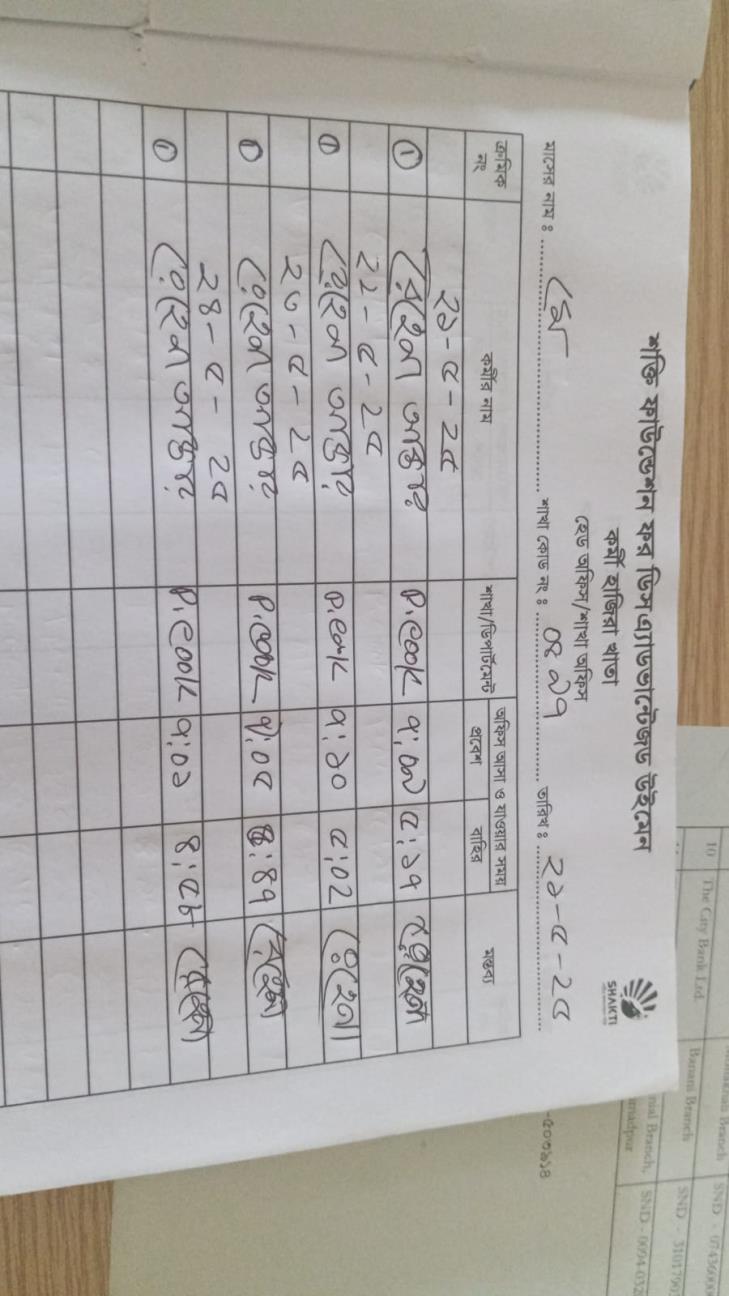 শক্তি ফাউন্ডেশন ফর ডিসএ্যাডভান্টেজড উইমেন
কর্মী হাজিরা খাতা
হেড অফিস/শাখা অফিস
SHAKTI
মাসের নাম ঃ মে শাখা কোড নং ঃ ০৪৯৭ তারিখ ঃ ২১-৫-২৫
ক্রমিক নং কর্মীর নাম শাখা/ডিপার্টমেন্ট অফিস আসা ও যাওয়ার সময় মন্তব্য
প্রবেশ বাহির
২১-৫-২৫
① আক্তার P.cook ৫:১৭
২২-৫-২৫
① আক্তার P.cook ৭:১০ ৫:০২
২৩-৫-২৫
① আক্তার P.cook ৭:০৫ ৪:৪৭
২৪-৫-২৫
① আক্তার P.cook ৭:০১ ৪:৫৮
10 The City Bank Ltd.
Banani Branch
Branch SND - 
SND - 
Branch, SND - 0094-032